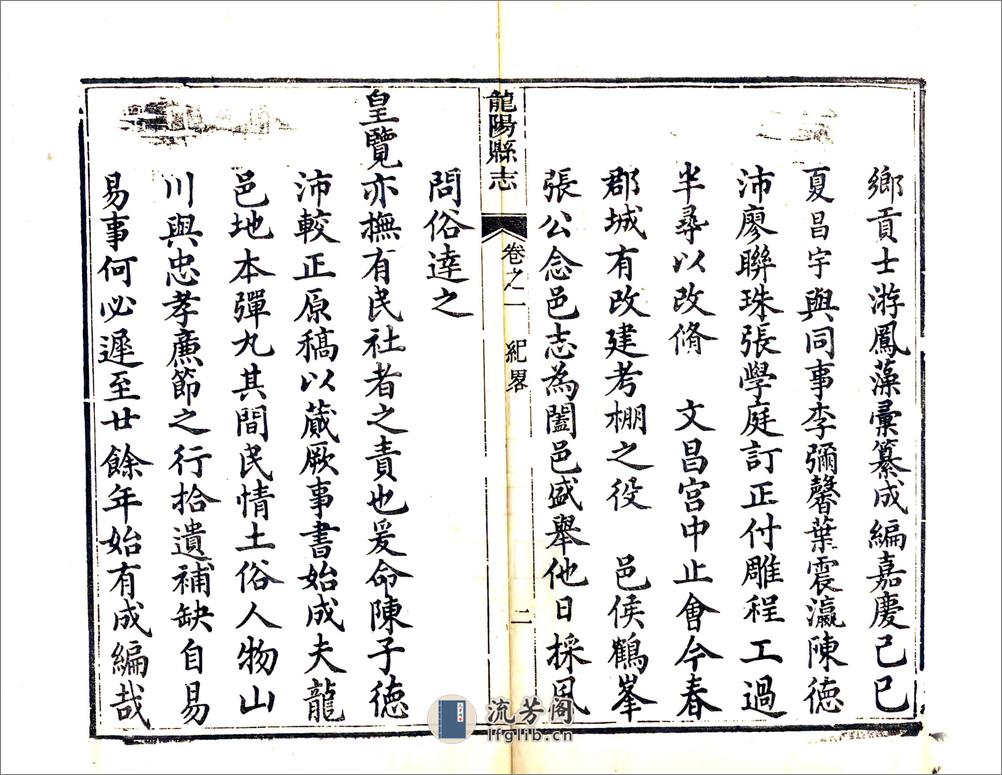 鄉貢士游鳳藻彙纂成編嘉慶己巳
夏昌宇與同事李彌馨葉震瀛陳德
沛廖聯珠張學庭訂正付雕程工過
半尋以改脩　文昌宫中止會今春
郡城有改建考棚之役　邑侯鶴峯
張公念邑志為闔邑盛舉他日採風
龍陽縣志
卷之一　紀畧
二
問俗達之
皇覽亦撫有民社者之責也爰命陳子德
沛較正原稿以蕆厥事書始成夫龍
邑地本彈丸其間民情土俗人物山
川與忠孝亷節之行拾遺補缺自易
易事何必遲至廿餘年始有成編哉
流芳阁
lfglib.cn